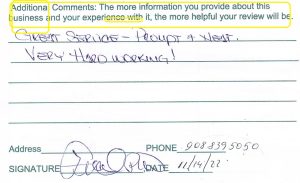 Additiona Comments: The more information you provide about this
business and your experience with it, the more helpful your review will be.
GREAT SERVICE - PROMPT & NEAT.
VERY HARD WORKING!
Address PHONE 9088395050
SIGNATURE DATE 11/14/22